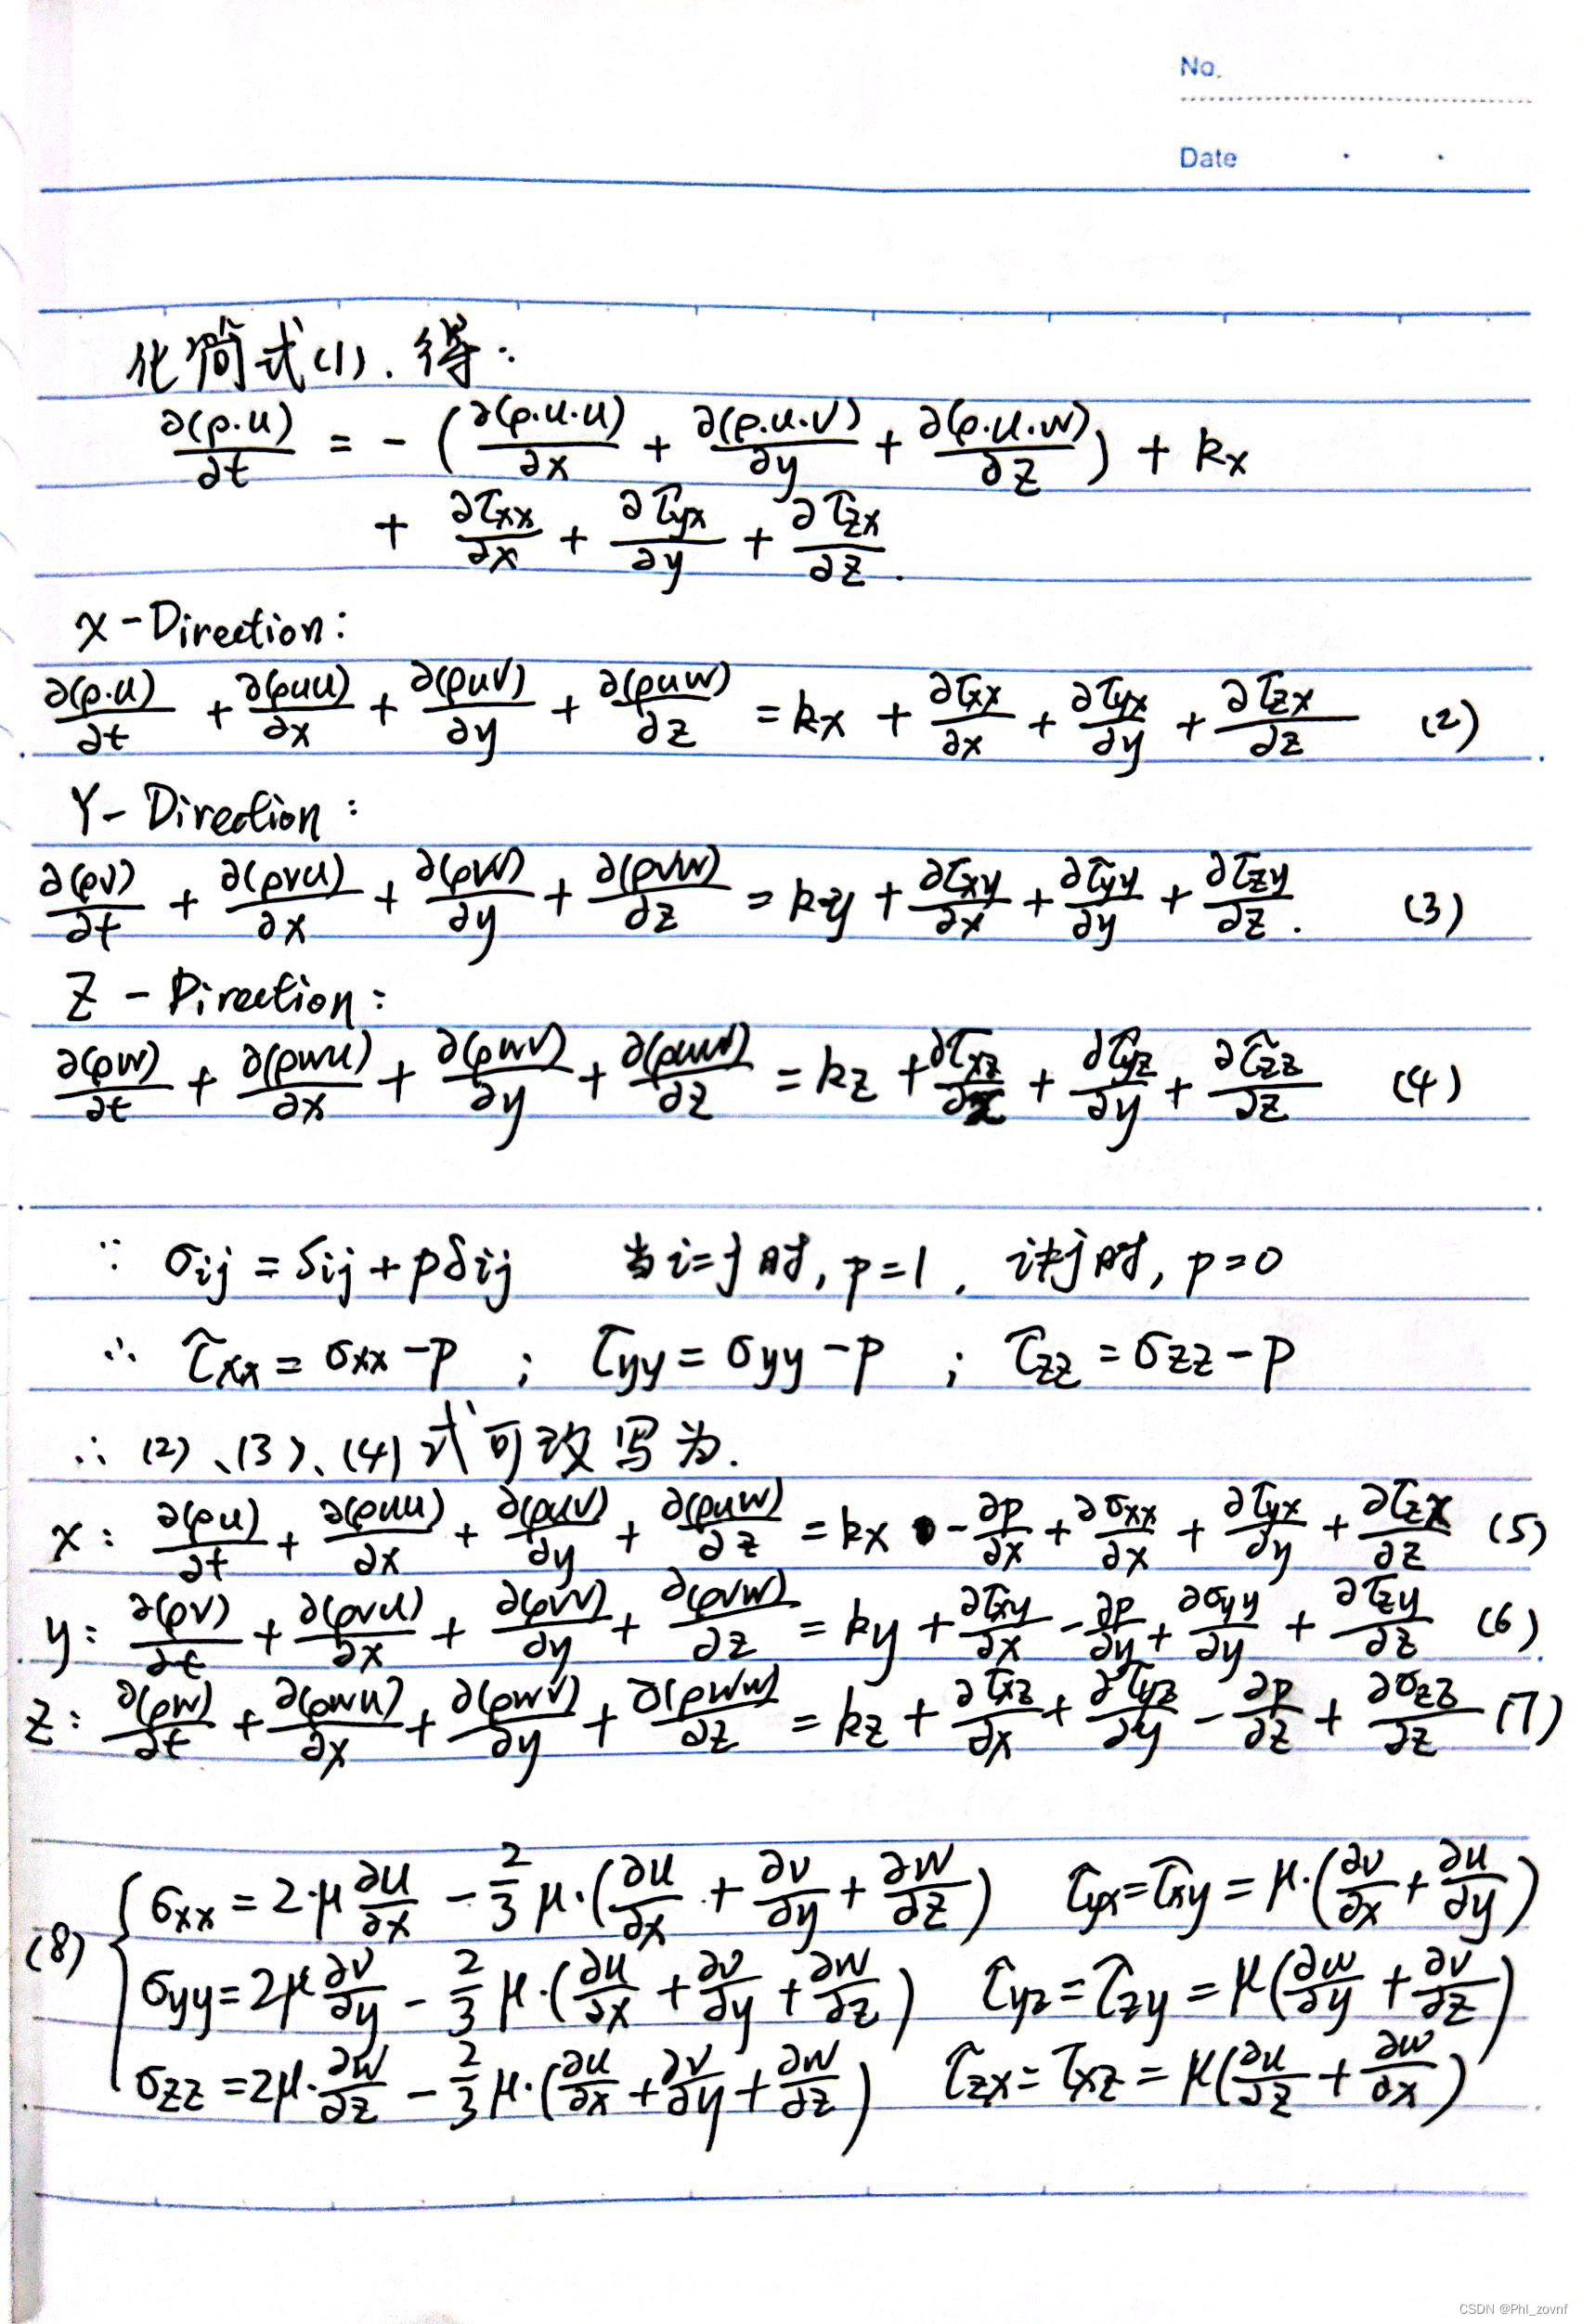 No.
Date
化简式(1).得:
∂(ρ·u)/∂t = - (∂(ρ·u·u)/∂x + ∂(ρ·u·v)/∂y + ∂(ρ·u·w)/∂z) + kx
+ ∂τxx/∂x + ∂τyx/∂y + ∂τzx/∂z.
X-Direction:
∂(ρ·u)/∂t + ∂(ρuu)/∂x + ∂(ρuv)/∂y + ∂(ρuw)/∂z = kx + ∂τxx/∂x + ∂τyx/∂y + ∂τzx/∂z (2)
Y-Direction:
∂(ρv)/∂t + ∂(ρvu)/∂x + ∂(ρvv)/∂y + ∂(ρvw)/∂z = ky + ∂τxy/∂x + ∂τyy/∂y + ∂τzy/∂z. (3)
Z-Direction:
∂(ρw)/∂t + ∂(ρwu)/∂x + ∂(ρwv)/∂y + ∂(ρww)/∂z = kz + ∂τxz/∂x + ∂τyz/∂y + ∂τzz/∂z (4)
∵ σij = Sij + pδij 当i=j时, p=1, i≠j时, p=0
∴ τxx = σxx - p ; τyy = σyy - p ; τzz = σzz - p
∴ (2)、(3)、(4)式可改写为.
x: ∂(ρu)/∂t + ∂(ρuu)/∂x + ∂(ρuv)/∂y + ∂(ρuw)/∂z = kx - ∂p/∂x + ∂σxx/∂x + ∂τyx/∂y + ∂τzx/∂z (5)
y: ∂(ρv)/∂t + ∂(ρvu)/∂x + ∂(ρvv)/∂y + ∂(ρvw)/∂z = ky + ∂τxy/∂x - ∂p/∂y + ∂σyy/∂y + ∂τzy/∂z (6)
z: ∂(ρw)/∂t + ∂(ρwu)/∂x + ∂(ρwv)/∂y + ∂(ρww)/∂z = kz + ∂τxz/∂x + ∂τyz/∂y - ∂p/∂z + ∂σzz/∂z (7)
σxx = 2·μ ∂u/∂x - 2/3 μ·(∂u/∂x + ∂v/∂y + ∂w/∂z) τyx = τxy = μ·(∂v/∂x + ∂u/∂y)
(8) { σyy = 2μ ∂v/∂y - 2/3 μ·(∂u/∂x + ∂v/∂y + ∂w/∂z) τyz = τzy = μ(∂w/∂y + ∂v/∂z)
σzz = 2μ·∂w/∂z - 2/3 μ·(∂u/∂x + ∂v/∂y + ∂w/∂z) τzx = τxz = μ(∂u/∂z + ∂w/∂x)
CSDN @Phl_zovnf